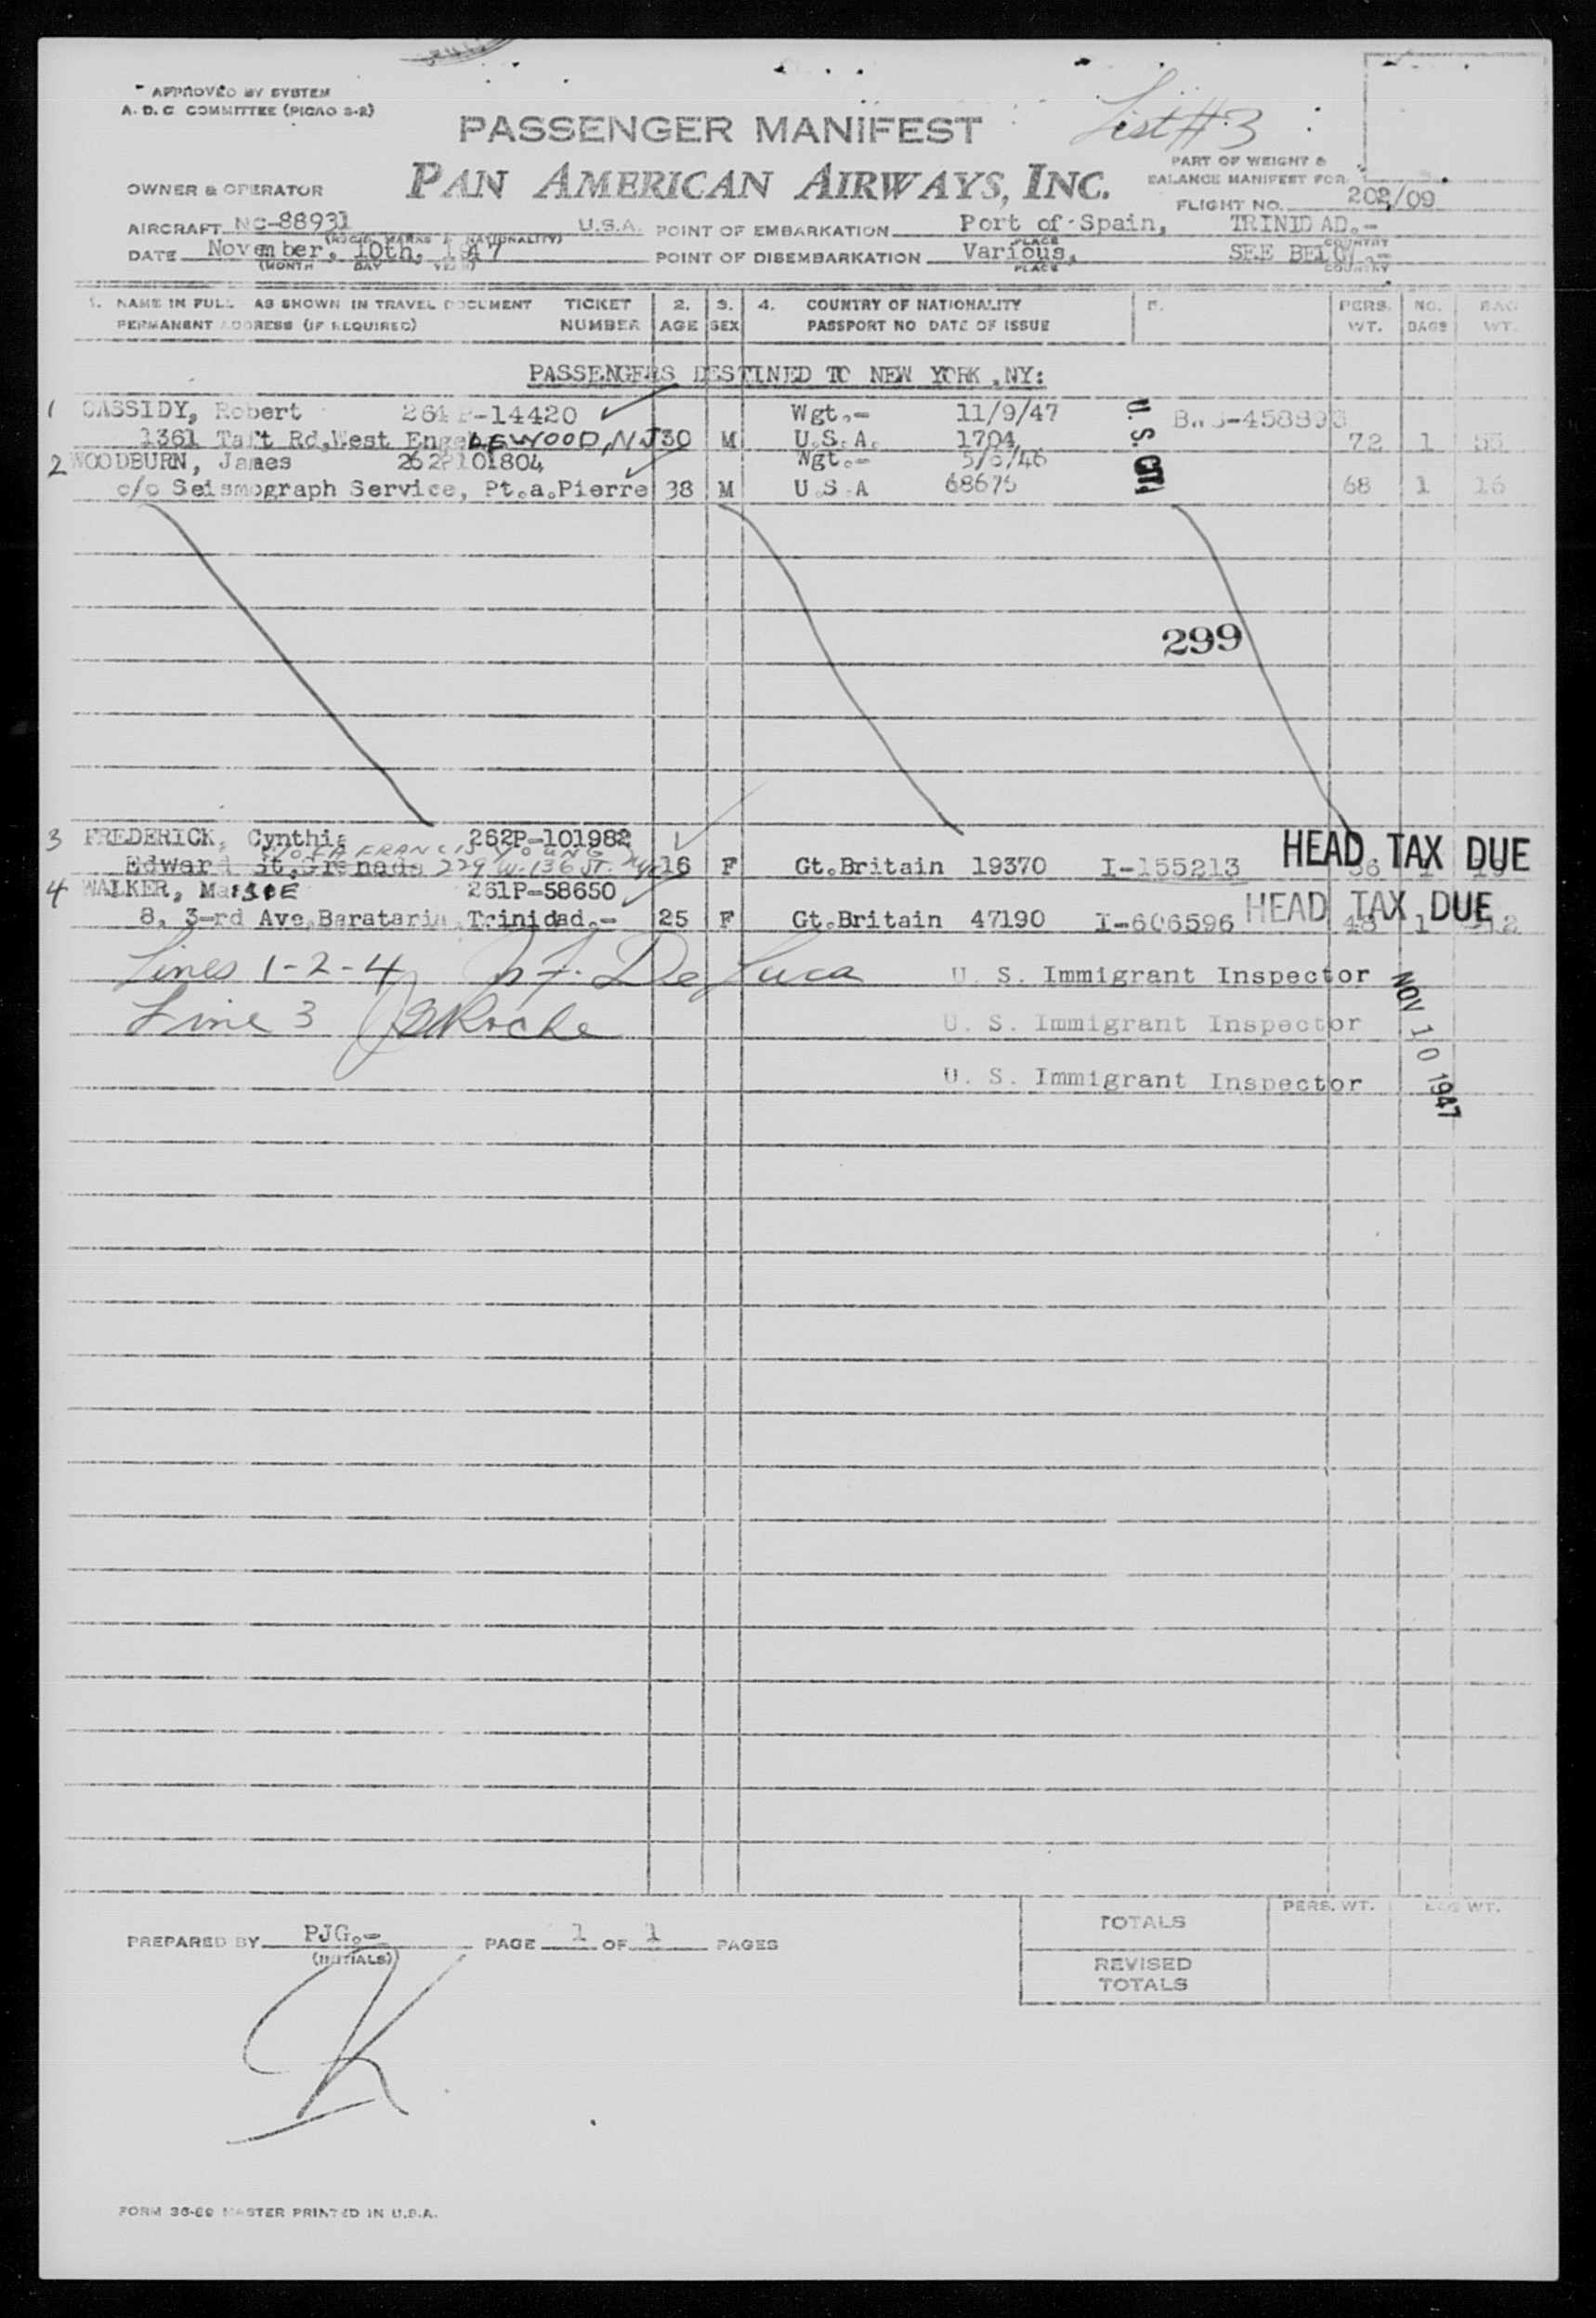 APPROVED BY SYSTEM
A. D. C. COMMITTEE (PICAO S-2)
List # 3
PASSENGER MANIFEST
PAN AMERICAN AIRWAYS, INC.
PART OF WEIGHT &
BALANCE MANIFEST FOR
OWNER & OPERATOR
FLIGHT NO. 202/09
AIRCRAFT NC-88931 U.S.A. POINT OF EMBARKATION Port of Spain, TRINIDAD.-
(REG'N. MARKS & NATIONALITY) PLACE COUNTRY
DATE November, 10th, 1947 POINT OF DISEMBARKATION Various, SEE BELOW.-
(MONTH DAY YEAR) PLACE COUNTRY
1. NAME IN FULL AS SHOWN IN TRAVEL DOCUMENT TICKET 2. 3. 4. COUNTRY OF NATIONALITY 5. PERS. NO. BAG
PERMANENT ADDRESS (IF REQUIRED) NUMBER AGE SEX PASSPORT NO DATE OF ISSUE WT. BAGS WT.
PASSENGERS DESTINED TO NEW YORK, NY:
1 CASSIDY, Robert 261P-14420 Wgt.- 11/9/47
1361 Taft Rd, West Engelewood, NJ 30 M U.S.A. 1704 72 1 55
2 WOODBURN, James 262P101804 Wgt.- 5/6/46
c/o Seismograph Service, Pt.a.Pierre 38 M U.S.A 68 1 16
U. S. CIT.
299
3 FREDERICK, Cynthia 262P-101982
FRANCIS YOUNG
Edward St, Grenada 229 W. 136 ST. NYC 16 F Gt.Britain 19370 I-155213 56 1
HEAD TAX DUE
4 WALKER, Maisie 261P-58650
8, 3-rd Ave, Barataria, Trinidad.- 25 F Gt.Britain 47190 I-606596 48 1
HEAD TAX DUE
Lines 1-2-4 De Luca U. S. Immigrant Inspector
Line 3 Roche U. S. Immigrant Inspector
U. S. Immigrant Inspector
NOV 10 1947
PREPARED BY PJG.- PAGE 1 OF 1 PAGES
(INITIALS)
TOTALS PERS. WT. BAG WT.
REVISED
TOTALS
K
FORM 36-69 MASTER PRINTED IN U.S.A.